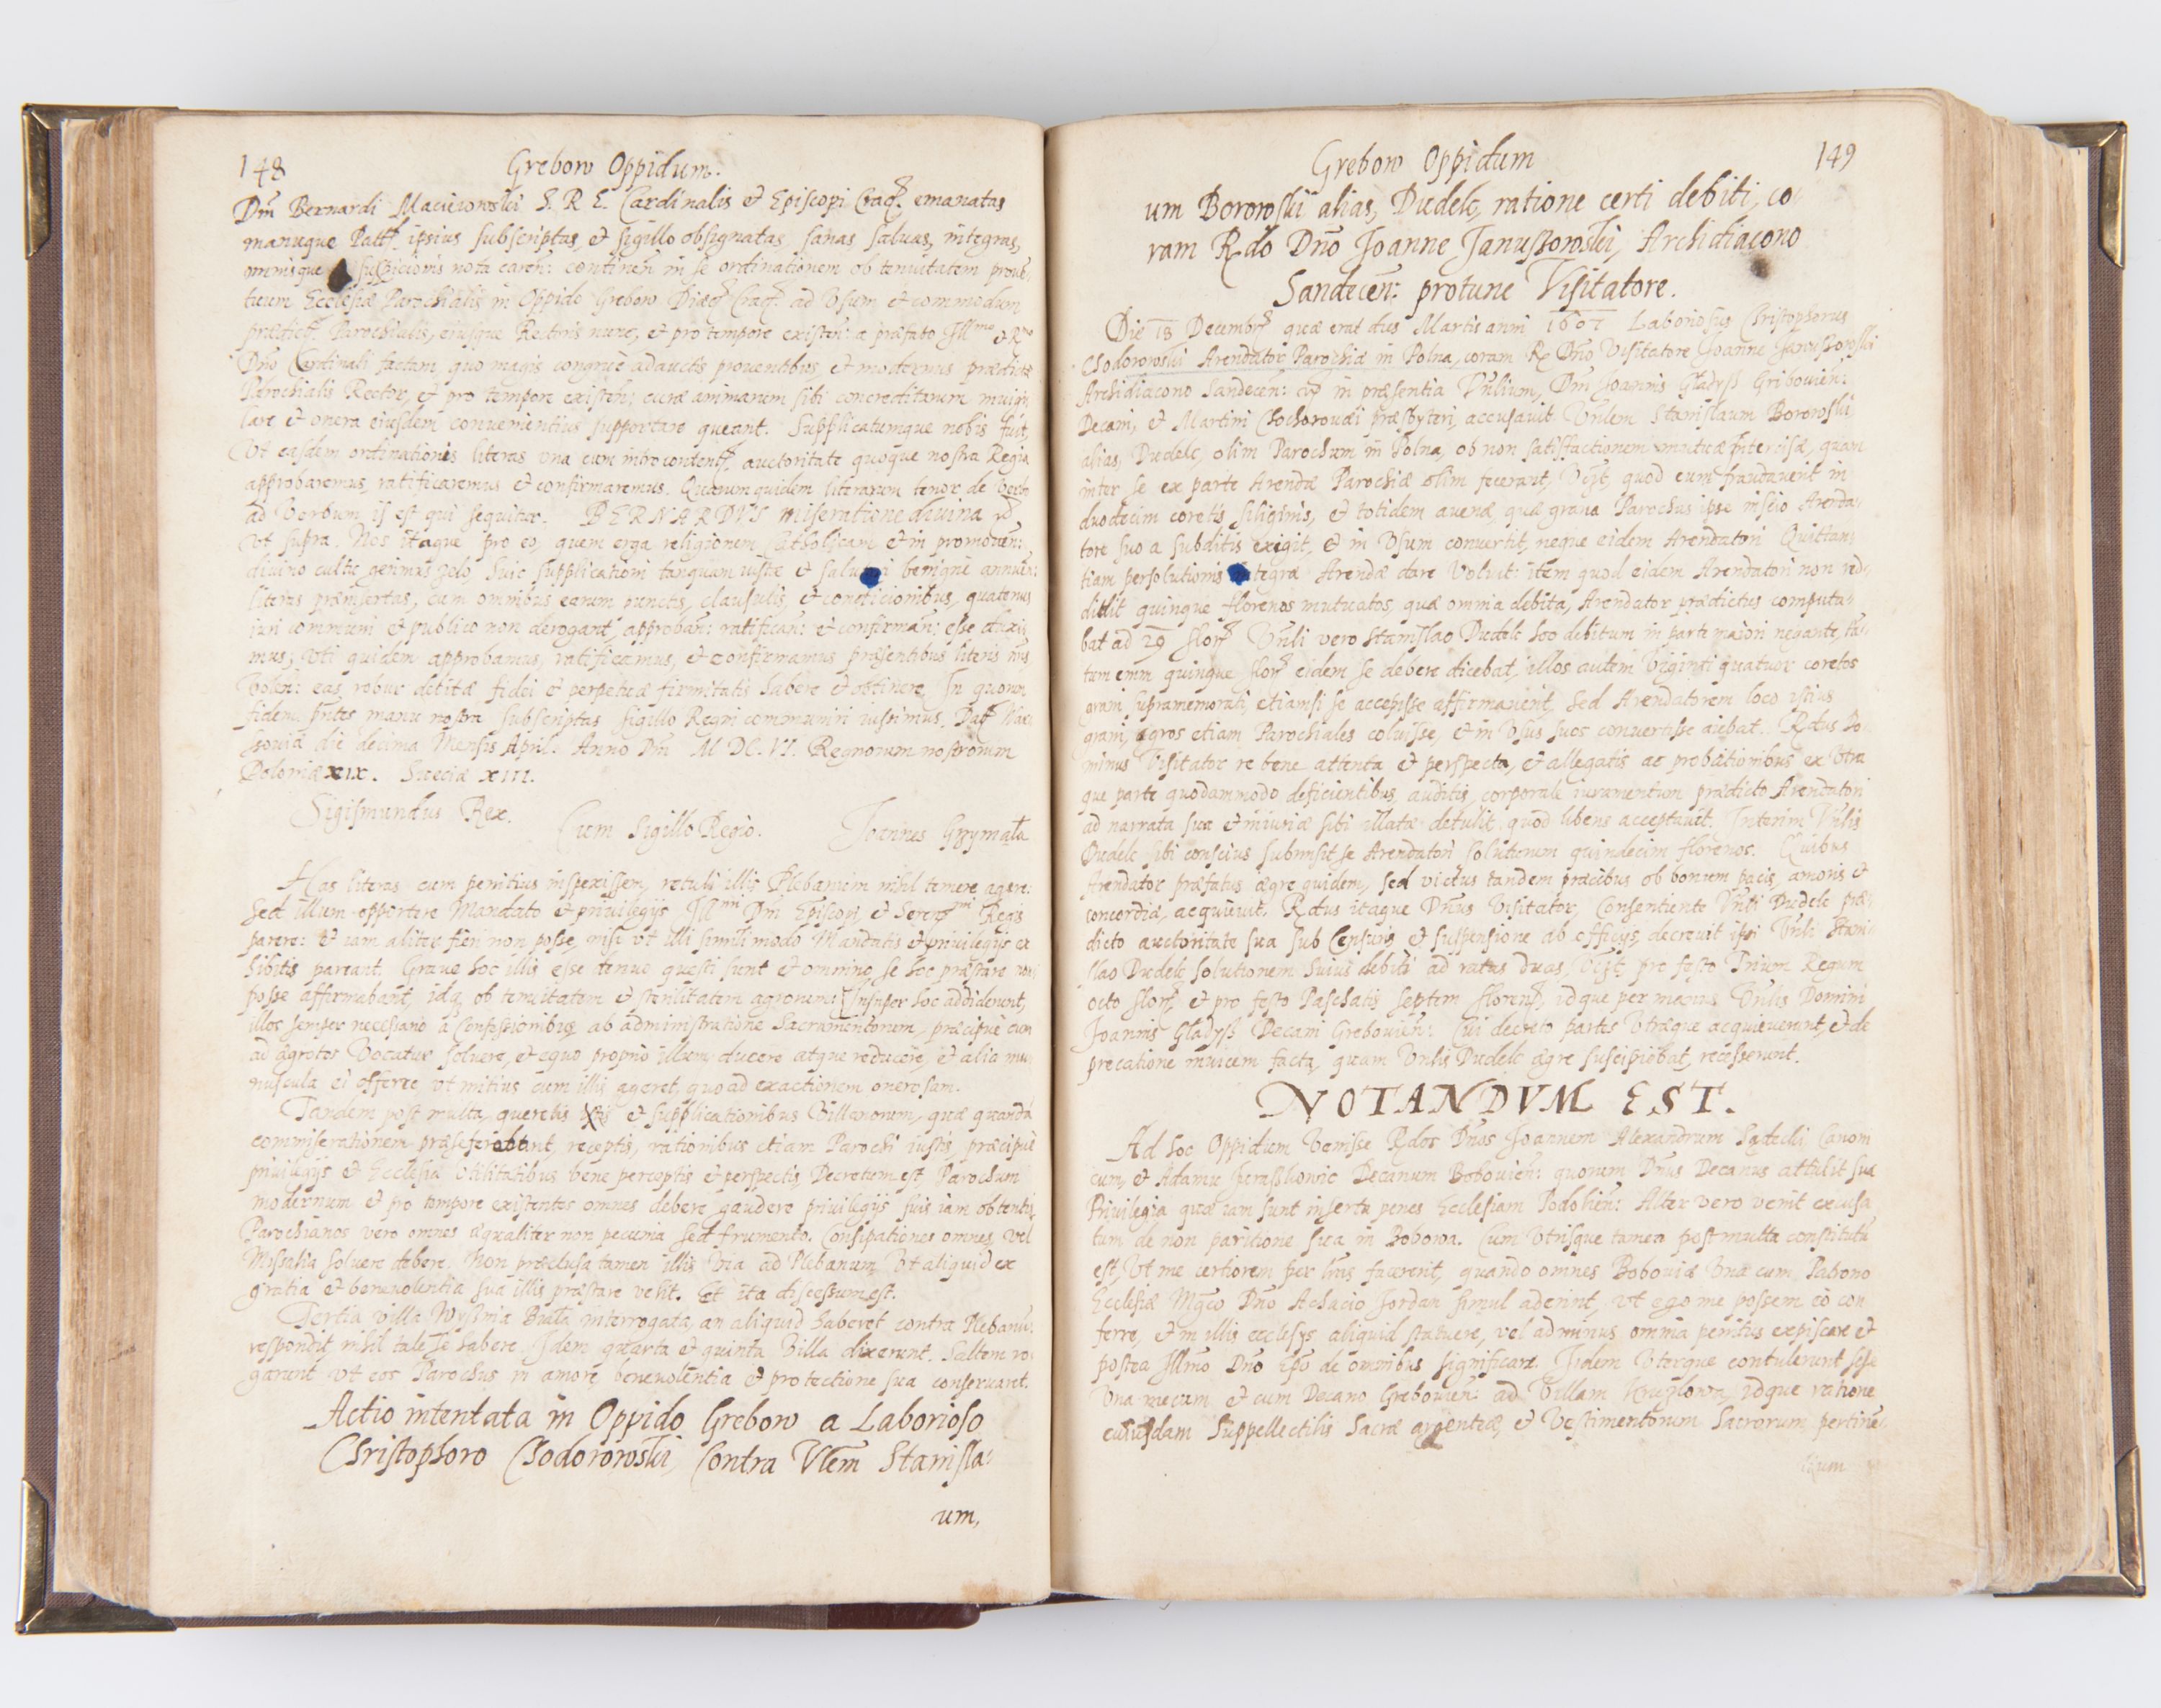 148
Grebow Oppidum.
Dni Bernardi Macieiowski S. R. E. Cardinalis et Episcopi Craco. emanatas
manuque ipsius subscriptas et sigillo obsignatas, sanas, saluas, integras,
omnisque suspicionis nota caren: continen in se ordinationem ob tenuitatem prouen
tuum Ecclesiæ Parochialis in Oppido Grebow Diæc Crac. ad Vsum et commodum
prædict. Parochialis, eiusque Rectoris nunc, et pro tempore existen: a præfato Illmo et Rmo
Dno Cardinali factam, quo magis congruè adauctis prouentibus, et modernus prædictæ
Parochialis Rector, et pro tempore existen: curæ animarum sibi concreditarum inuigi
lare et onera eiusdem conuenientius supportare queant. Supplicatumque nobis fuit,
Vt easdem ordinationis literas vna cum introcontent, auctoritate quoque nostra Regia
approbaremus, ratificaremus et confirmaremus. Quarum quidem literarum tenor de Verbo
ad Verbum is est qui sequitur. BERNARDVS miseratione diuina
vt supra. Nos itaque pro eo, quem erga religionem Catholicam et in promouen:
diuino cultu gerimus zelo, huic supplicationi tanquam iustæ et salutari benignè annuen:
literas præinsertas, cum omnibus earum punctis, clausulis, et conditionibus, quatenus
iuri communi et publico non derogant, approban: ratifican: et confirman: esse duxi
mus; vti quidem approbamus, ratificamus, et confirmamus præsentibus literis nris
Volen: eas robur debitæ fidei et perpetuæ firmitatis habere et obtinere. In quorum
fidem pntes manu nostra subscriptas sigillo Regni communiri iussimus. Dat War
souiæ die decima Mensis April. Anno Dni M DC. VI. Regnorum nostrorum
Poloniæ XIX. Sueciæ XIII.
Sigismundus Rex. Cum Sigillo Regio. Joannes Grzymała
Has literas cum penitius inspexissem, retuli illis Plebanum nihil temere agere:
Sed illum opportere Mandato et priuilegijs Illmi Dni Episcopi, et Serenmi Regis
parere: et iam aliter fieri non posse, nisi vt illi simili modo Mandatis et priuilegijs ex
hibitis pareant. Graue hoc illis esse denuo questi sunt et omnino se hoc præstare non
posse affirmabant, idq ob tenuitatem et sterilitatem agrorum: Insuper hoc addiderunt,
illos semper necessario a Confessionibus, ab administratione Sacramentorum, præcipuè cum
ad ægrotos Vocatur soluere, et equo proprio illum ducere atque reducere, et alia mu
nuscula ei offerre vt mitius cum illis ageret, quoad exactionem onerosam.
Tandem post multa, querelis et supplicationibus Villanorum, quæ quandā
commiserationem præseferebant, receptis, rationibus etiam Parochi iustis, præcipuè
priuilegijs et Ecclesiæ Vtilitatibus bene perceptis et perspectis, Decretum est, Parochum
modernum et pro tempore existentes omnes debere gaudere priuilegijs suis iam obtentis,
Parochianos vero omnes æqualiter non pecunia sed frumento. Consipationes omnes, vel
Missalia soluere debere. Non præclusa tamen illis via ad Plebanum Vt aliquid ex
gratia et beneuolentia sua illis præstare velit. Et ita discessum est.
Tertia villa Wysznia Biała interrogata, an aliquid haberet contra Plebanū:
respondit, nihil tale se habere. Idem quarta et quinta Villa dixerunt. Saltem ro
garunt vt eos Parochus in amore, beneuolentia et protectione sua conseruaret.
Actio intentata in Oppido Grebow a Laborioso
Christophoro Chodorowski, Contra Vlem Stanisla:
um,
149
Grebow Oppidum
um Borowski alias, Dudek, ratione certi debiti, co
ram Rdo Dno Joanne Januszowski, Archidiacono
Sandecen: protunc Visitatore.
Die 18 Decembr quæ erat dies Martis anni 1607 Laboriosus Christophorus
Chodorowski Arendator Parochiæ in Polna, coram R Dno Visitatore Joanne Januszowski
Archidiacono Sandecen: in præsentia Vnlium, Dni Joannis Gładysz Gribouien:
Decani, et Martini præsbyteri, accusauit Vnlem Stanislaum Borowski
alias, Dudek, olim Parochum in Polna, ob non satisfactionem mutuæ quam
inter se ex parte Arendæ Parochiæ olim fecerant, Vizt, quod eum fraudauerit in
duodecim coretis siliginis, et totidem auenæ, quæ grana Parochus ipse inscio Arenda:
tore suo a subditis exigit, et in Vsum conuertit, neque eidem Arendatori Quittan:
tiam persolutionis integræ Arendæ dare Voluit: item quod eidem Arendatori non red:
didit quinque florenos mutuatos, quæ omnia debita, Arendator prædictus computa:
bat ad 29 flor Vnli vero Stanislao Dudek hoc debitum in parte maiori negante, tan:
tum enim quinque flor eidem se debere dicebat, illos autem Viginti quatuor coretos
grani supramemorati, etiamsi se accepisse affirmauerit, sed Arendatorem loco istius
grani, agros etiam Parochiales coluisse, et in Vsus suos conuertisse aiebat. Rdus Do
minus Visitator re bene attenta et perspecta, et allegatis ac probationibus ex Vtra
que parte quodammodo deficientibus, auditis, corporale iuramentum prædicto Arendatori
ad narrata sua et iniuriæ sibi illatæ detulit, quod libens acceptauit. Interim Vnlis
Dudek sibi conscius submisit se Arendatori soluturum quindecim florenos. Quibus
Arendator præfatus ægre quidem, sed victus tandem præcibus ob bonum pacis, amoris et
concordiæ, acquieuit. Rdus itaque Dnus Visitator, Consentiente Vnli Dudek præ:
dicto auctoritate sua sub Censuris et suspensione ab officijs, decreuit ipsi Vnli Stani
slao Dudek solutionem huius debiti ad ratas duas, Vizt, pro festo Trium Regum
octo flor, et pro festo Paschatis septem floren, idque per manus Vnlis Domini
Joannis Gładysz Decani Grebouien: Cui decreto partes Vtræque acquieuerunt, et de
precatione inuicem facta, quam Vnlis Dudek ægre suscipiebat, recesserunt.
NOTANDVM EST.
Ad hoc Oppidum Venisse Rdos Dnos Joannem Alexandrum Sądecki Canoni
cum, et Adamum Decanum Bobouien: quorum Dnus Decanus attulit sua
Priuilegia quæ iam sunt inserta penes Ecclesiam Podolien: Alter vero venit excusa
tum de non paritione sua in Bobowa. Cum Vtrisque tamen post multa constitutū
est, Vt me certiorem per lras facerent, quando omnes Bobouiæ Vna cum Patrono
Ecclesiæ Mgco Dno Achacio Jordan simul aderint, vt ego me possem eò con
ferre, et in illis ecclesijs aliquid statuere, vel adminus omnia penitus expiscare et
postea Illmo Dno Epo de omnibus significare. Iidem Vterque contulerunt sese
Vna mecum et cum Decano Grebouien: ad Villam Kruzlowa, idque ratione
cuiusdam Suppellectilis Sacræ argenteæ, et Vestimentorum Sacrorum pertinen